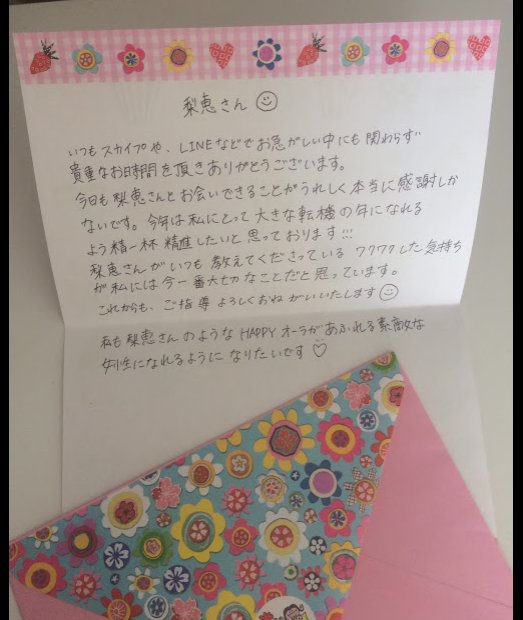 梨恵さん
いつもスカイプや、LINEなどでお急がしい中にも関わらず
貴重なお時間を頂きありがとうございます。
今日も梨恵さんとお会いできることがうれしく本当に感謝しか
ないです。今年は私にとって大きな転機の年になれる
よう精一杯精進したいと思っております!!!
梨恵さんがいつも教えてくださっているワクワクした気持ち
が私には今一番大切なことだと思っています。
これからも、ご指導よろしくおねがいいたします
私も梨恵さんのようなHAPPYオーラがあふれる素敵な
女性になれるようになりたいです♡